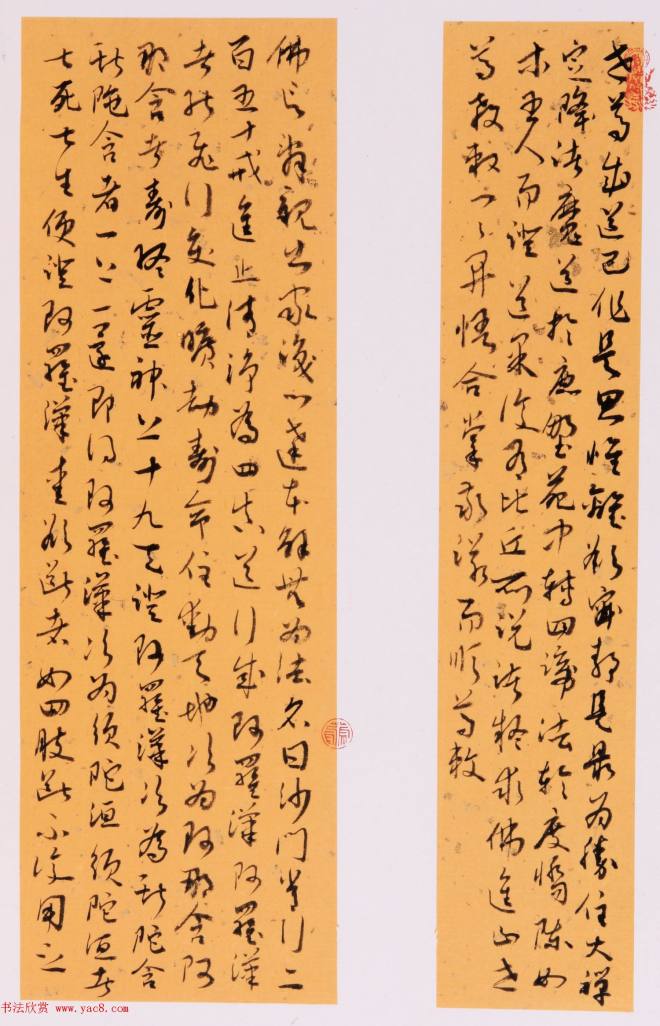 世尊成道已作是思惟離欲寂静是最為勝住大禪
定降諸魔道於鹿野苑中轉四諦法輪度憍陳如
等五人而證道果復有比丘所說諸疑求佛進止世
尊教敕一一開悟合掌敬諾而順尊敕
佛言辭親出家識心達本解無為法名曰沙門常行二
百五十戒進止清淨為四真道行成阿羅漢阿羅漢
者能飛行變化曠劫壽命住動天地次為阿那含阿
那含者壽終靈神上十九天證阿羅漢次為斯陀含
斯陀含者一上一還即得阿羅漢次為須陀洹須陀洹者
七死七生便證阿羅漢愛欲斷者如四肢斷不復用之
书法欣赏 www.yac8.com